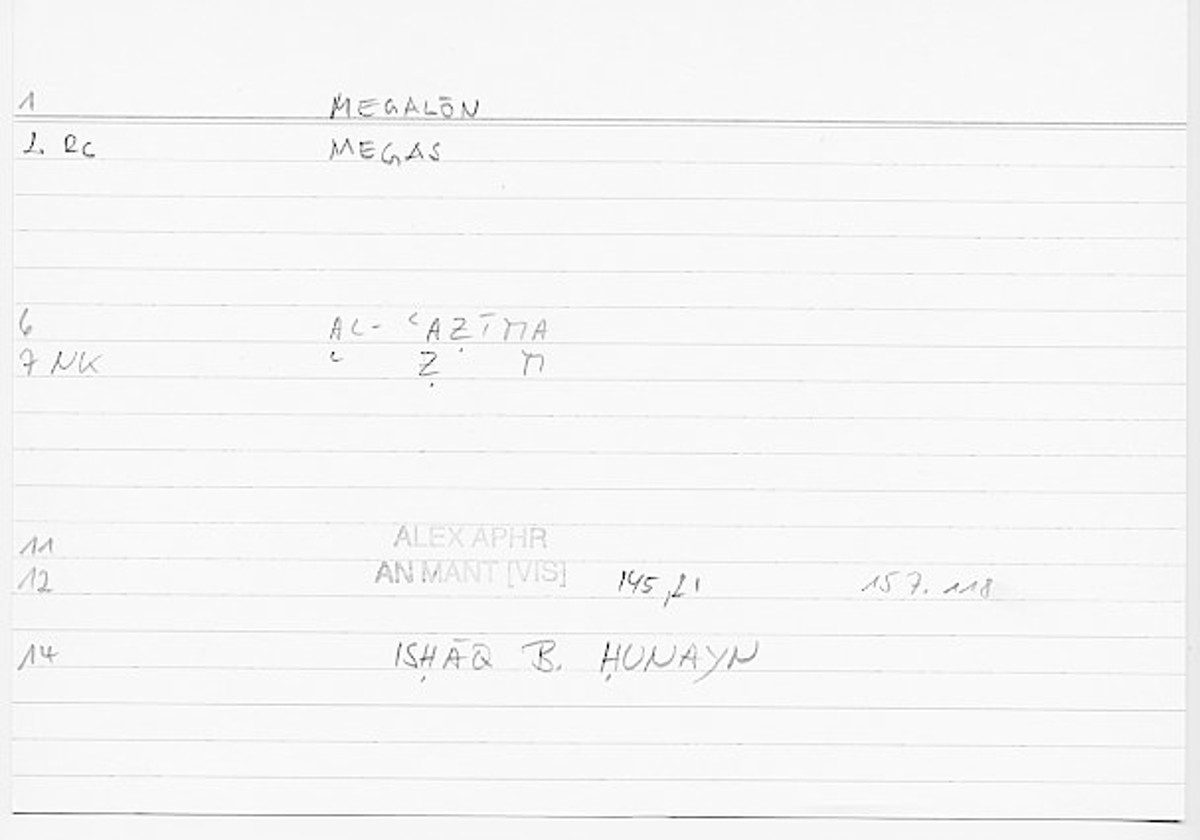 1 MEGALŌN
2. RC MEGAS
6 AL- ʿAẒĪMA
7 NK ʿ Ẓ M
11 ALEX APHR
12 AN MANT [VIS] 145,21 157.118
14 ISḤĀQ B. ḤUNAYN